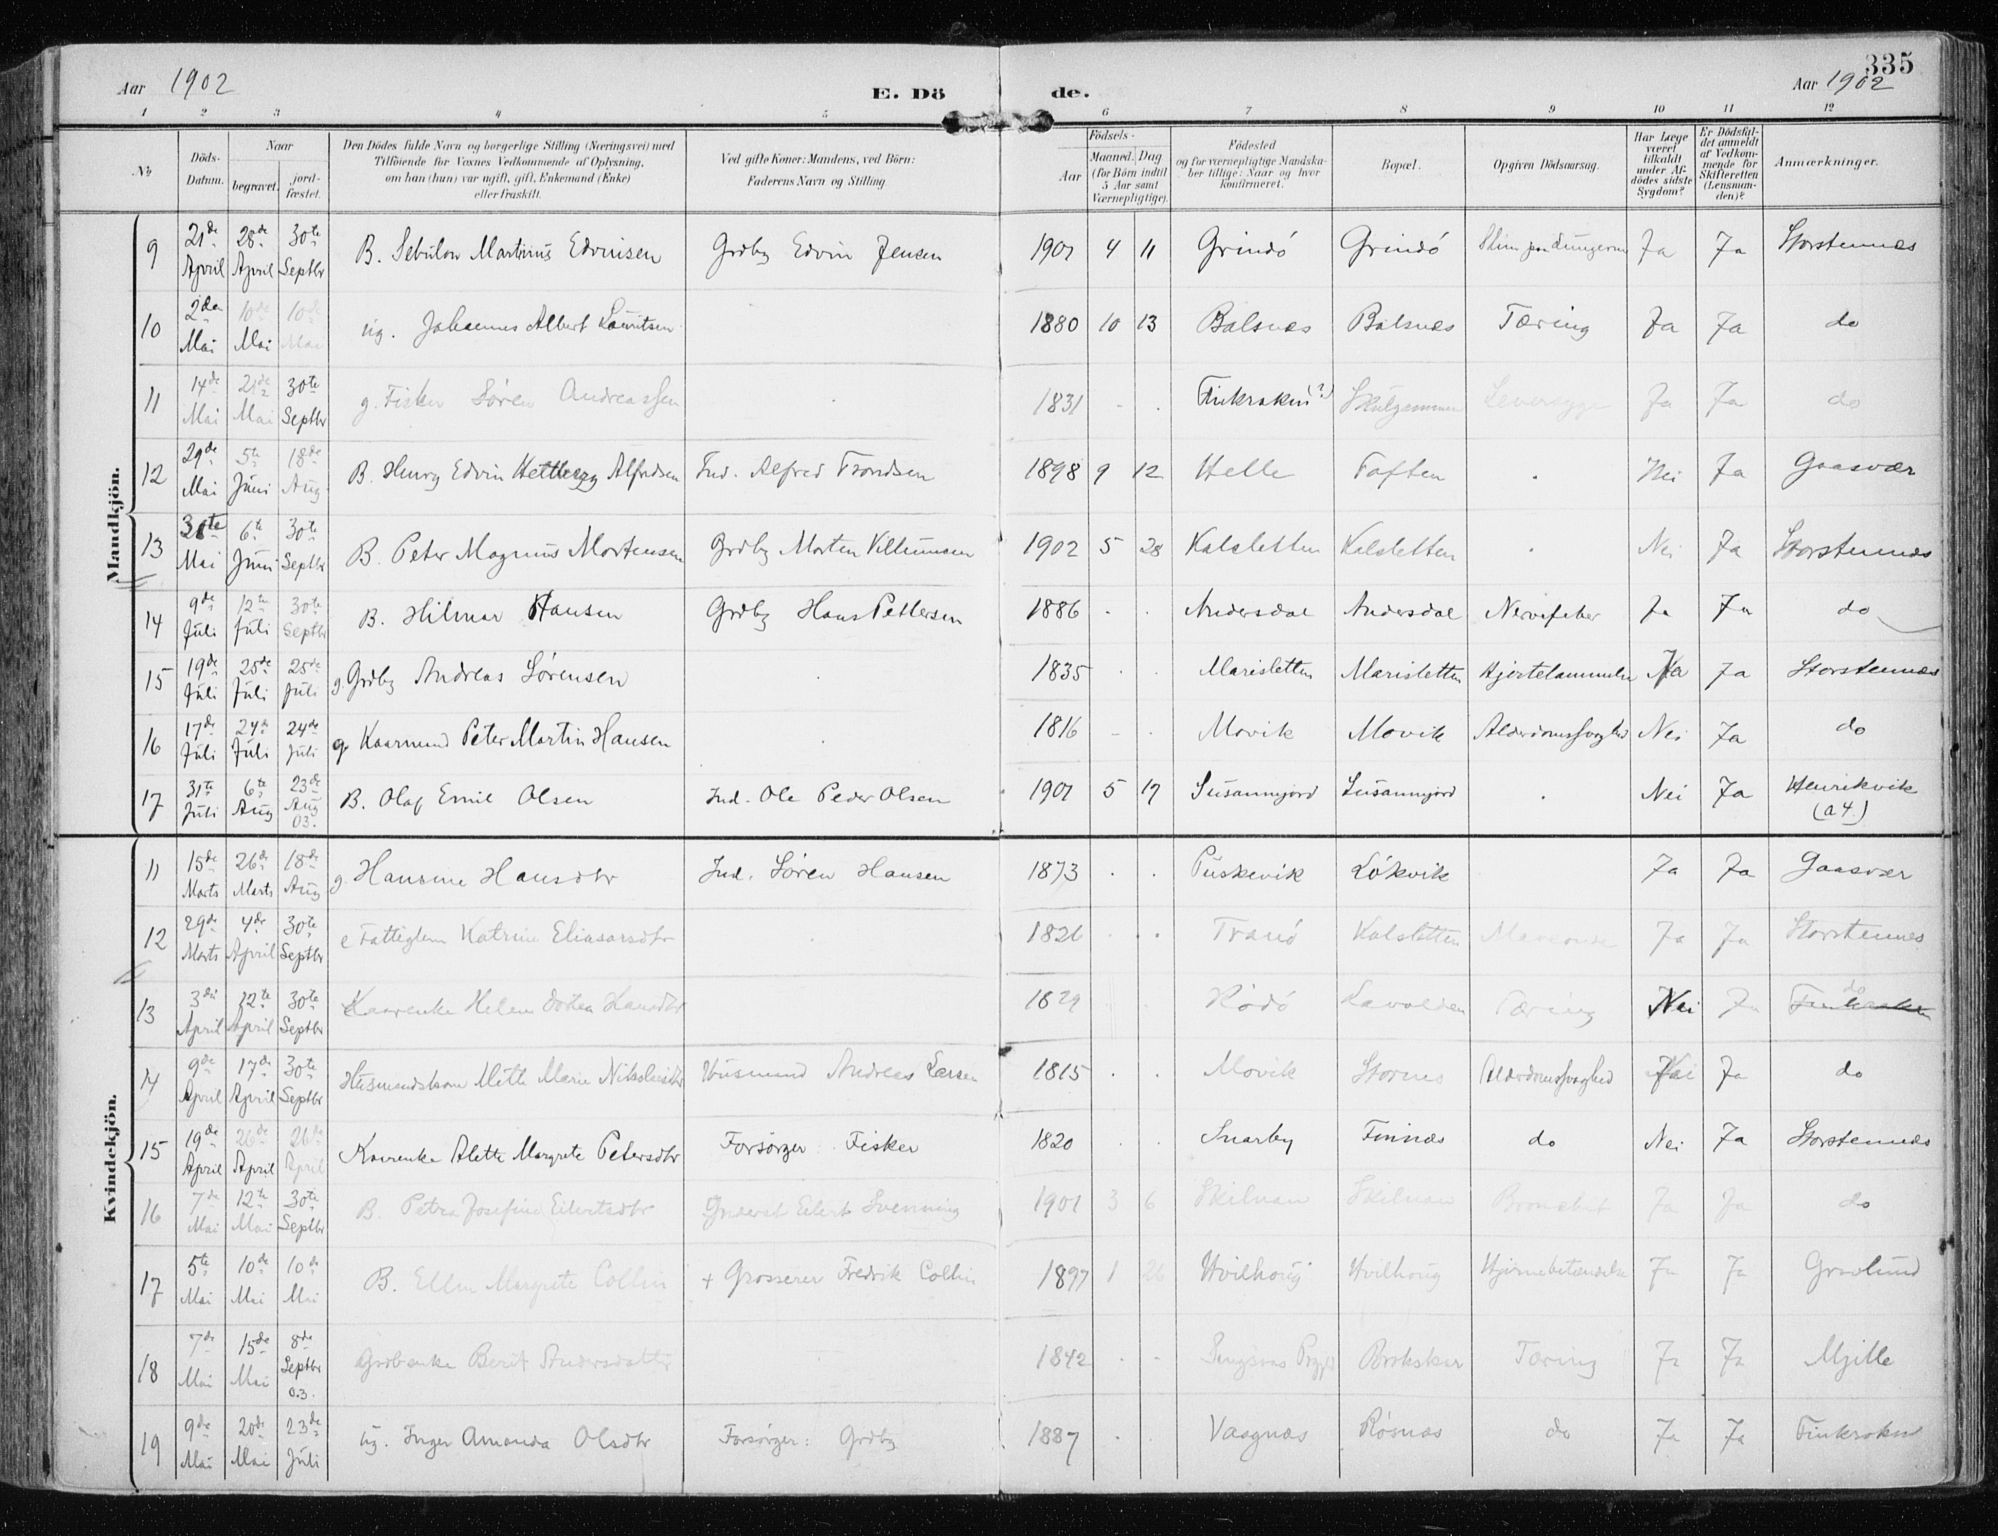 335
Aar 1902
E. Dö de.
Aar 1902
1 2 3 4 5 6 7 8 9 10 11 12
No
Döds-Datum.
Naar
begravet.
jord-fæstet.
Den Dödes fulde Navn og borgerlige Stilling (Næringsvei) med
Tilföiende for Voxnes Vedkommende af Oplysning,
om han (hun) var ugift, gift, Enkemand (Enke)
eller fraskilt.
Ved gifte Koner: Mandens, ved Börn:
Faderens Navn og Stilling
Födsels-
Aar
Maaned. Dag
(for Börn indtil
5 Aar samt
Værnepligtige).
Födested
og for værnepligtige Mandska-
ber tillige: Naar og hvor
konfirmeret.
Bopæl.
Opgiven Dödsaarsag.
Har Læge
været
tilkaldt
under Af-
dödes sidste
Sygdom?
Er Dödsfal-
det anmeldt
af Vedkom-
mende for
Skifteretten
(Lensman-
den)?
Anmærkninger.
Mandkjön.
9 21de April 28de April 30te Septbr B. Sebulon Martinus Edvinsen Grdbr Edvin Jensen 1901 4 11 Grindö Grindö Ja Ja Storstennæs
10 2den Mai 10de Mai 10de Mai ug. Johannes Albert Lauritsen 1880 10 13 Balsnæs Balsnæs Tæring Ja Ja do
11 14de Mai 21de Mai 30te Septbr g. Fisker Sören Andreassen 1831 - - Finkroken (?) Skulgammen Ja Ja do
12 29de Mai 5te Juni 18de Aug B. Henry Edvin Alfredsen Ind. Alfred Trondsen 1898 9 12 Helle Toften . Nei Ja Gaasvær
13 31te Mai 6te Juni 30te Septbr B. Peter Magnus Mortensen Grdbr Morten 1902 5 28 Kalsletten Kalsletten . Nei Ja Storstennæs
14 9de Juli 12te Juli 30te Septbr B. Hilmar Hansen Grdbr Hans Pettersen 1886 . . Andersdal Andersdal Nervefeber Ja Ja do
15 19de Juli 25de Juli 25de Juli g. Grdbr Andreas Sörensen 1835 . . Marisletten Marisletten Hjertelammelse Ja Ja Storstennæs
16 17de Juli 24de Juli 24de Juli g. Kaarmand Peter Martin Hansen 1816 - . Movik Movik Alderdomssvaghed Nei Ja do
17 31te Juli 6te Aug 23de Aug 03. B. Olaf Emil Olsen Ind. Ole Peder Olsen 1901 5 17 Susannjord Susannjord . Nei Ja Henrikvik (a4.)
Kvindekjön.
11 15de Marts 26de Marts 18de Aug g. Hansine Hansdtr Ind. Sören Hansen 1873 . . Puskevik Lökvik Ja Ja Gaasvær
12 29de Marts 4de April 30te Septbr e Fattiglem Katrine Eliasarsdtr 1826 . . Tranö Kalsletten Ja Ja Storstennes
13 3die April 12te April 30te Septbr Kaarenke Helene Dotea Hansdtr 1829 Rödö Lavolden Tæring Nei Ja do
14 9de April 17de April 30te Septbr Husmandskone Mette Marie Nikolaisdtr Husmand Andreas Larsen 1815 . . Movik Stornes Alderdomssvaghed Nei Ja do
15 19de April 26de April 26de April Kaarenke Alette Margrete Petersdtr Forsörger: Fisker 1820 . . Snarby Finnæs do Nei Ja Storstennæs
16 7de Mai 12te Mai 30te Septbr B. Petra Josefine Eilertsdtr Inderst Eilert Svenning 1901 3 6 Skilnan Skilnan Ja Ja do
17 5te Mai 10de Mai 10de Mai B. Ellen Margrete Collin + Grosserer Fredrik Collin 1897 1 26 Hvilhoug Hvilhoug Hjernebetændelse Ja Ja Gravlund
18 7de Mai 15de Mai 8de Septbr 03. Grdbenke Berit Andersdatter 1842 . - Brokskar Tæring Ja Ja Mjelle
19 9de Mai 20de Mai 23de Juli ug. Inger Amanda Olsdtr Forsörger: Grdbr 1887 . . Vasgnæs Rösnæs do Ja Ja Finkroken